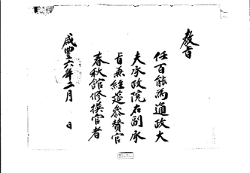 教旨
任百能為通政大
夫承政院右副承
旨兼經筵參贊官
春秋館修撰官者
咸豊六年二月 日